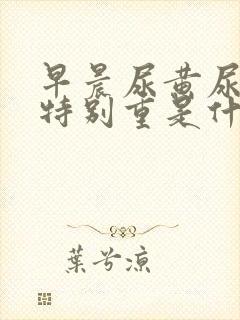 早晨尿黄尿
特别重是什
葉兮涼